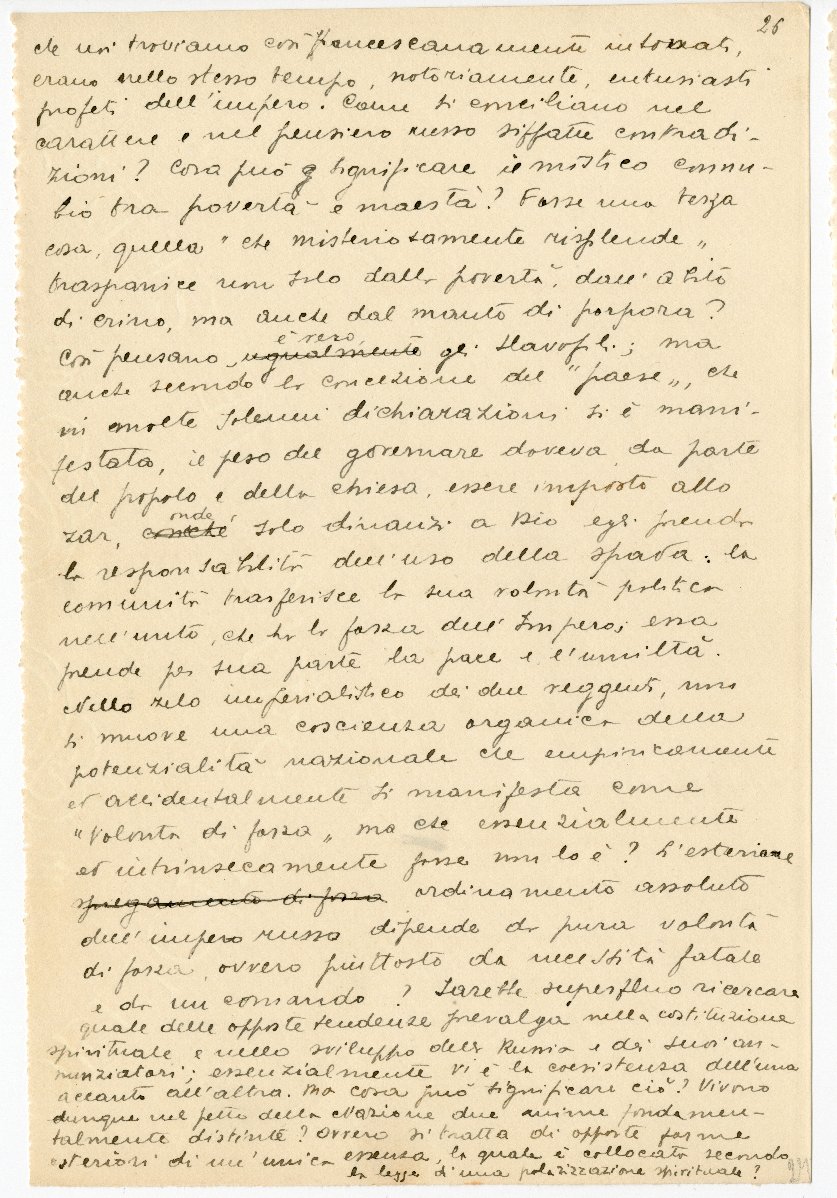 26
che noi troviamo così francescanamente intonati,
erano nello stesso tempo, notoriamente, entusiasti
profeti dell'impero. Come si conciliano nel
carattere e nel pensiero russo siffatte contradi-
zioni? Cosa può significare il mistico connu-
bio tra povertà e maestà? Forse una terza
cosa, quella "che misteriosamente risplende"
traspariice non solo dalla povertà, dall'abito
di crino, ma anche dal manto di porpora?
è vero,
Così pensano ugualmente gli slavofili; ma
anche secondo la concezione del "paese", che
in molte solenni dichiarazioni si è mani-
festata, il peso del governare doveva da parte
del popolo e della chiesa, essere imposto allo
onde
zar, cosiché solo dinanzi a Dio egli prenda
la responsabilità dell'uso della spada: la
comunità trasferisce la sua volontà politica
nell'unto, che ha la forza dell'Impero; essa
prende per sua parte la pace e l'umiltà.
Nello zelo imperialistico dei due veggenti, non
si muove una coscienza organica della
potenzialità nazionale che empiricamente
ed accidentalmente si manifesta come
"volontà di forza" ma che essenzialmente
ed intrinsecamente forse non lo è? L'esteriore
spiegamento di forza ordinamento assoluto
dell'impero russo dipende da pura volontà
di forza, ovvero piuttosto da necessità fatale
e da un comando? Sarebbe superfluo ricercare
quale delle opposte tendenze prevalga nella costituzione
spirituale e nello sviluppo della Russia e dei suoi an-
nunziatori; essenzialmente vi è la coesistenza dell'una
accanto all'altra. Ma cosa può significare ciò? Vivono
dunque nel petto della Nazione due anime fondamen-
talmente distinte? Ovvero si tratta di opposte forme
esteriori di un'unica essenza, la quale è collocata secondo
la legge di una polarizzazione spirituale?